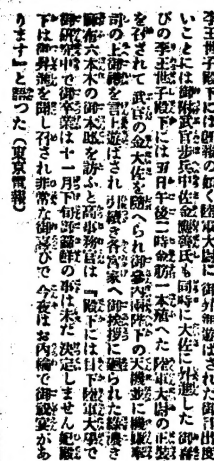 李王世子殿下には既報の如く陸軍大尉に御昇進遊ばされた御目出度
いことには御附武官歩兵中佐金應善氏も同時に大佐に昇進した 御喜
びの李王世子殿下には五日午後二時金筋一本殖へた陸軍大尉の正装
を召されて武官の金大佐を随へられ御参内両陛下の天機並に機嫌奉
伺の上御禮を言上遊ばされ引續き各宮家へ御挨拶に廻られた
麻布六本木の御本邸を訪ふと高事務官は『殿下には目下陸軍大學で
御研究中で御卒業は十一月下旬御歸鮮の事は未だ決定しません妃殿
下は御昇進を聞し召され非常な御喜びで今夜はお内輪で御祝宴があ
ります』と語つた(東京電報)